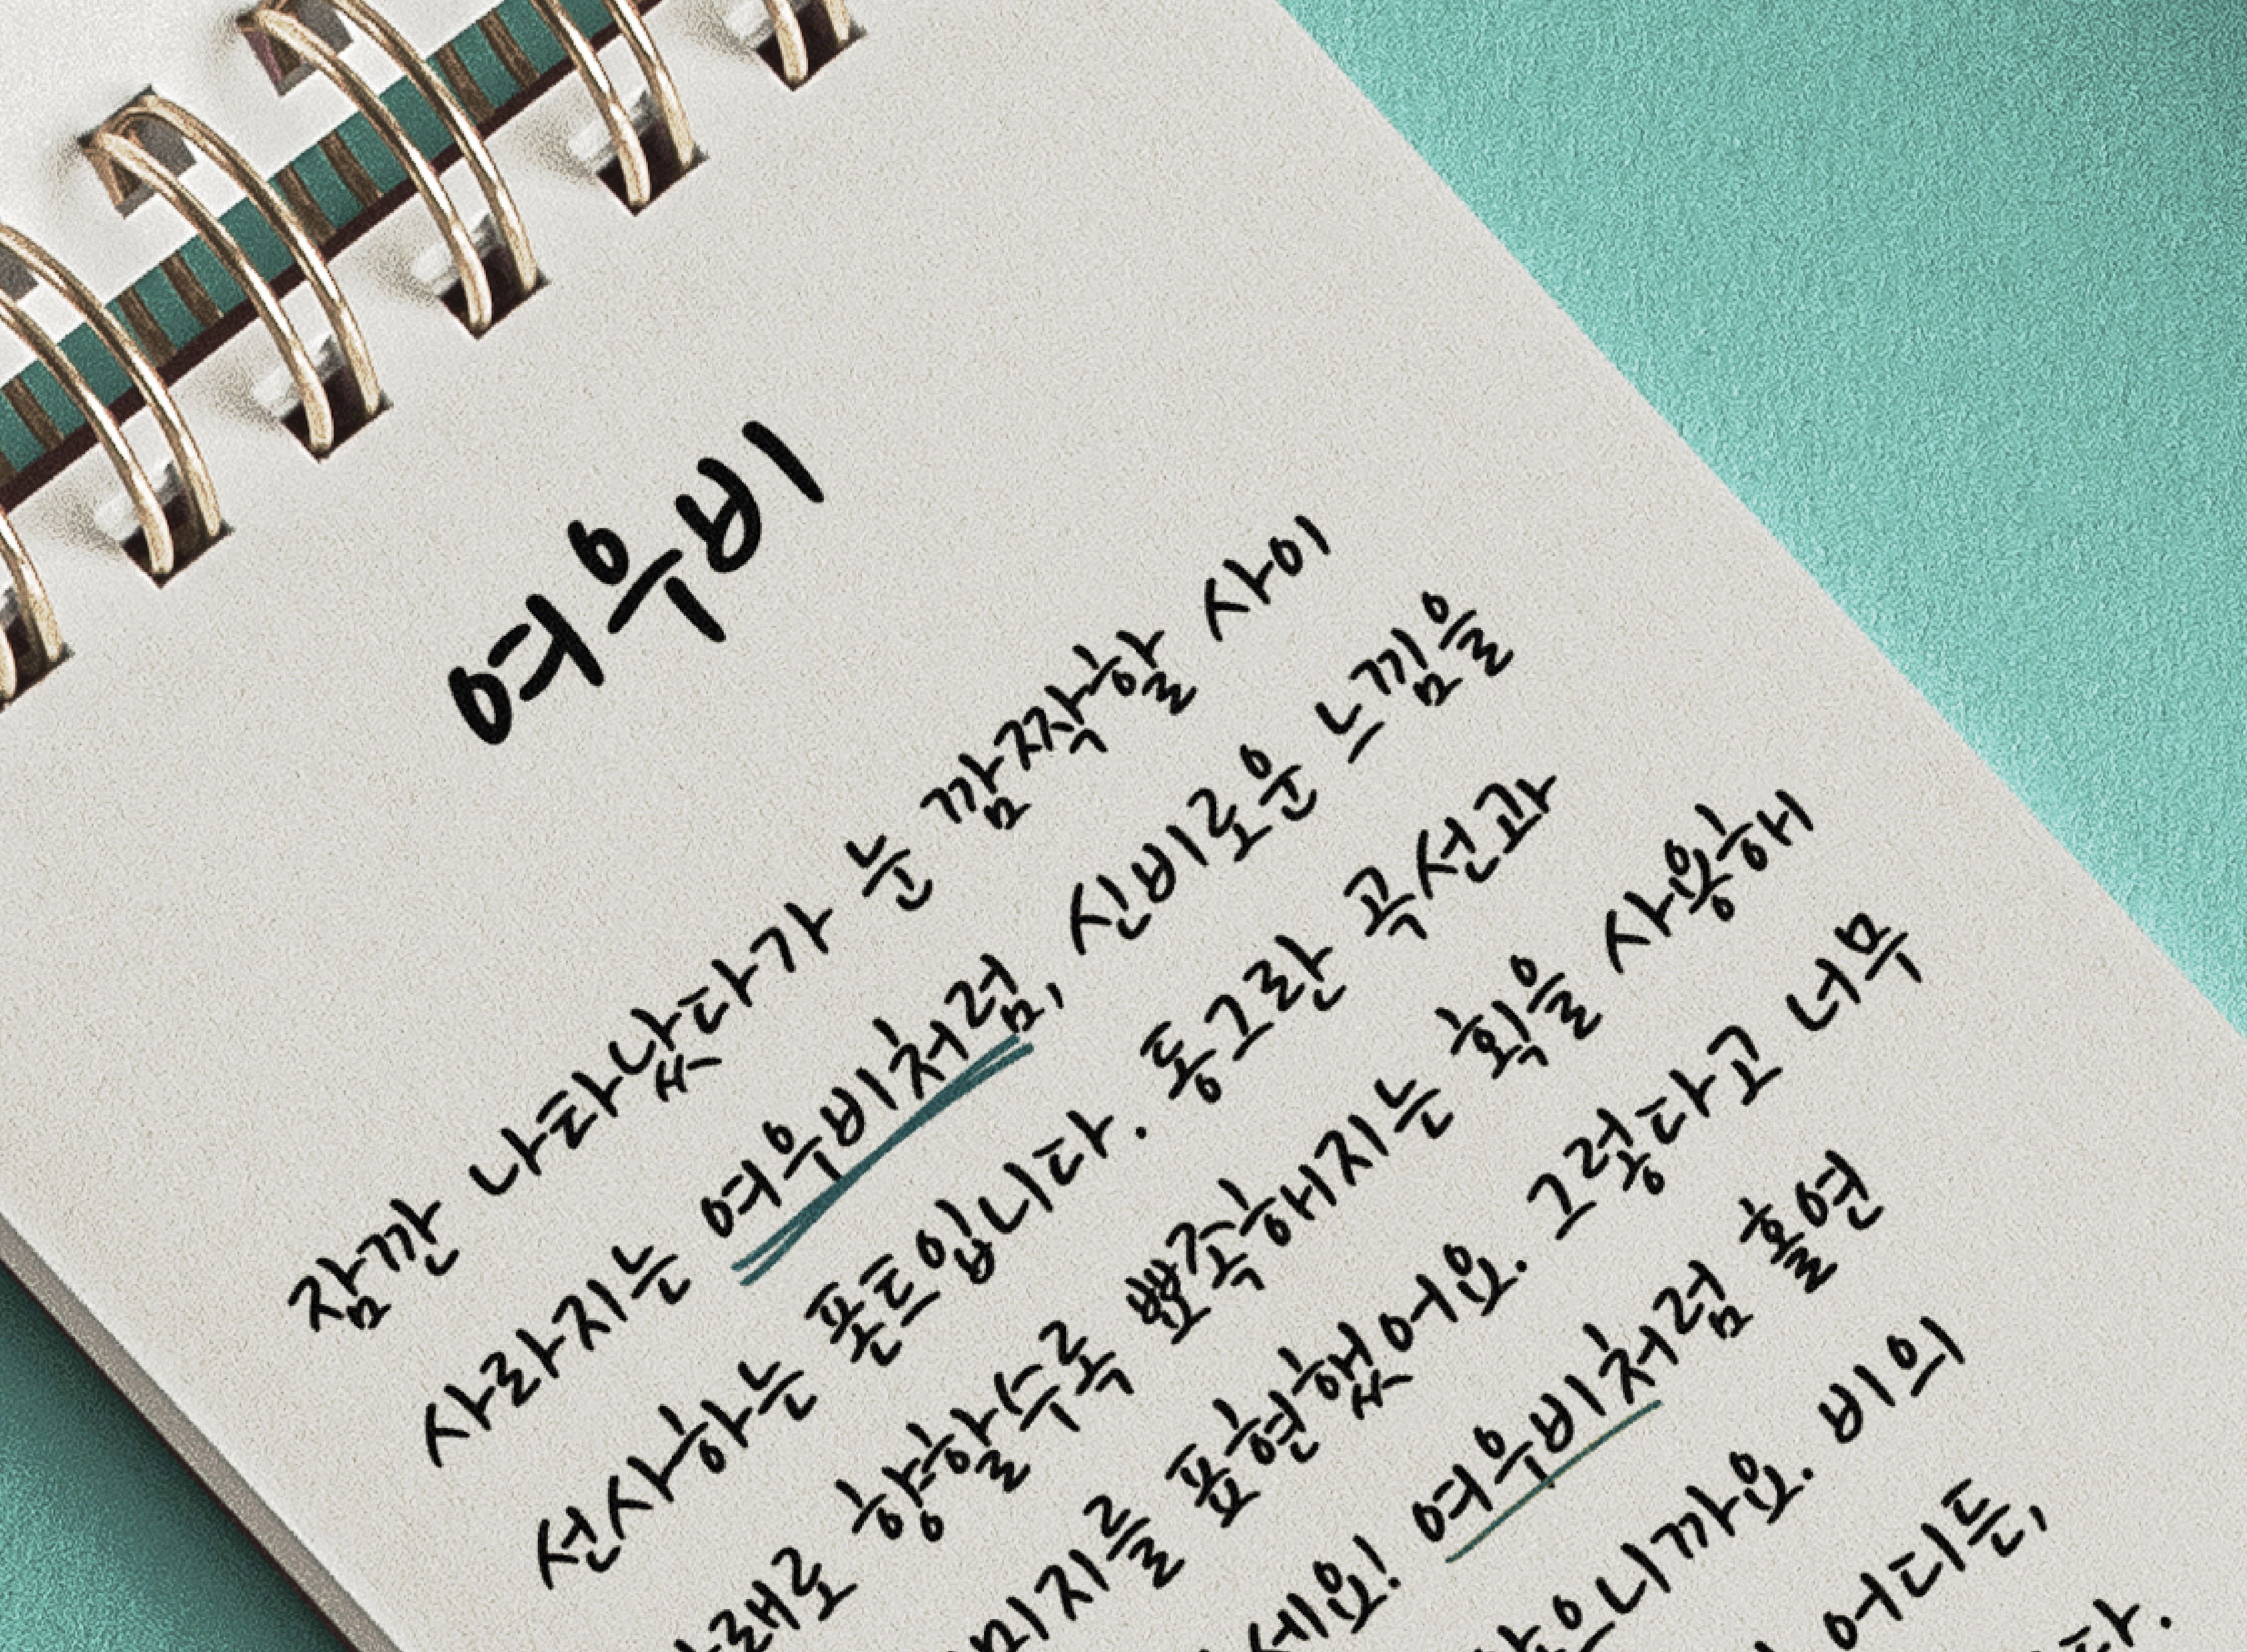 여우비
잠깐 나타났다가 눈 깜짝할 사이
사라지는 여우비처럼, 신비로운 느낌을
선사하는 폰트입니다. 동그란 곡선과
향할수록 뾰족해지는 획을 사용해
표현했어요. 그렇다고 너무
여우비처럼 홀연
비의
어디든,